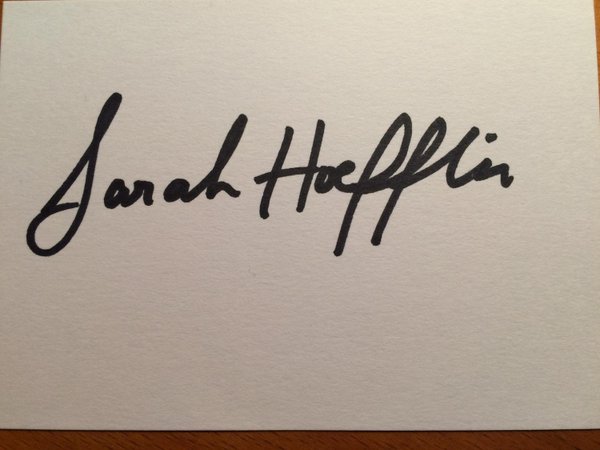 Sarah Hoefflin